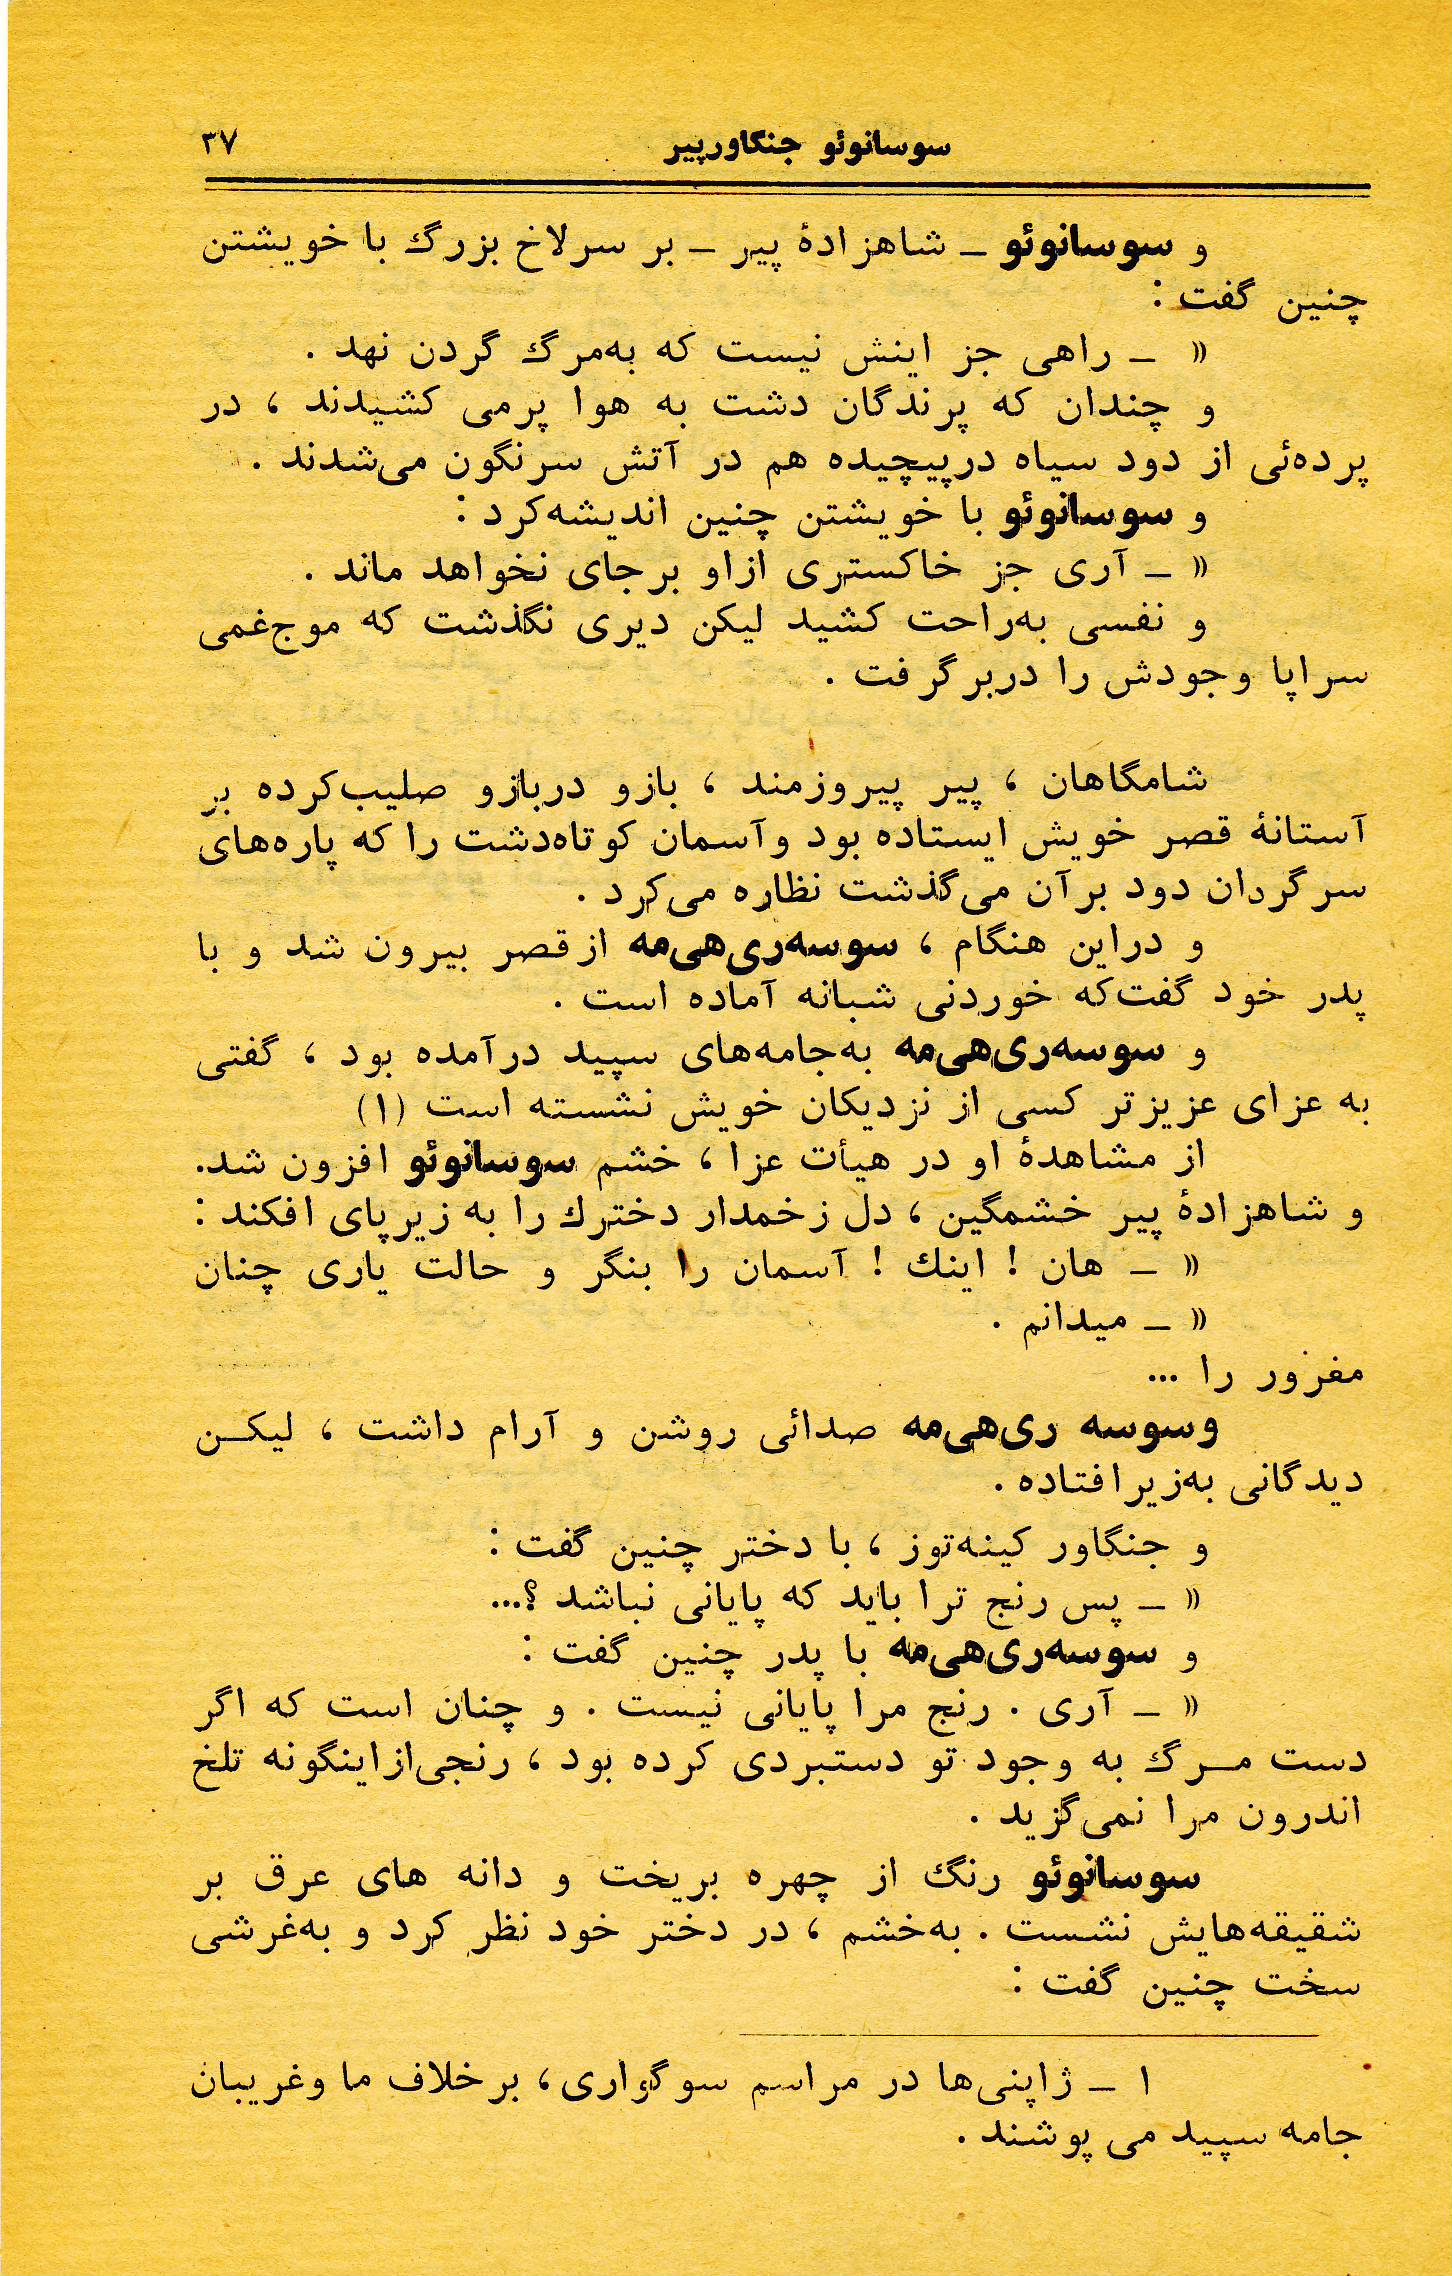 سوسانوئو جنگاورپیر ۳۷
و سوسانوئو ـ شاهزادهٔ پیر ـ بر سرلاخ بزرگ با خویشتن
چنین گفت :
« ـ راهی جز اینش نیست که به‌مرگ گردن نهد .
و چندان که پرندگان دشت به هوا پرمی کشیدند ، در
پرده‌ئی از دود سیاه درپیچیده هم در آتش سرنگون می‌شدند .
و سوسانوئو با خویشتن چنین اندیشه‌کرد :
« ـ آری جز خاکستری ازاو برجای نخواهد ماند .
و نفسی به‌راحت کشید لیکن دیری نگذشت که موج‌غمی
سراپا وجودش را دربرگرفت .
شامگاهان ، پیر پیروزمند ، بازو دربازو صلیب‌کرده بر
آستانهٔ قصر خویش ایستاده بود وآسمان کوتاه‌دشت را که پاره‌های
سرگردان دود برآن می‌گذشت نظاره می‌کرد .
و دراین هنگام ، سوسه‌ری‌هی‌مه ازقصر بیرون شد و با
پدر خود گفت‌که خوردنی شبانه آماده است .
و سوسه‌ری‌هی‌مه به‌جامه‌های سپید درآمده بود ، گفتی
به عزای عزیزتر کسی از نزدیکان خویش نشسته است (۱)
از مشاهدهٔ او در هیأت عزا ، خشم سوسانوئو افزون شد.
و شاهزادهٔ پیر خشمگین ، دل زخمدار دخترك را به زیرپای افکند :
« ـ هان ! اینك ! آسمان را بنگر و حالت یاری چنان
« ـ میدانم .
مغرور را ...
وسوسه ری‌هی‌مه صدائی روشن و آرام داشت ، لیکـن
دیدگانی به‌زیرافتاده .
و جنگاور کینه‌توز ، با دختر چنین گفت :
« ـ پس رنج ترا باید که پایانی نباشد ؟...
و سوسه‌ری‌هی‌مه با پدر چنین گفت :
« ـ آری . رنج مرا پایانی نیست . و چنان است که اگر
دست مـرگ به وجود تو دستبردی کرده بود ، رنجی‌ازاینگونه تلخ
اندرون مرا نمی‌گزید .
سوسانوئو رنگ از چهره بریخت و دانه های عرق بر
شقیقه‌هایش نشست . به‌خشم ، در دختر خود نظر کرد و به‌غرشی
سخت چنین گفت :
۱ ـ ژاپنی‌ها در مراسم سوگواری، برخلاف ما وغریبان
جامه سپید می پوشند .